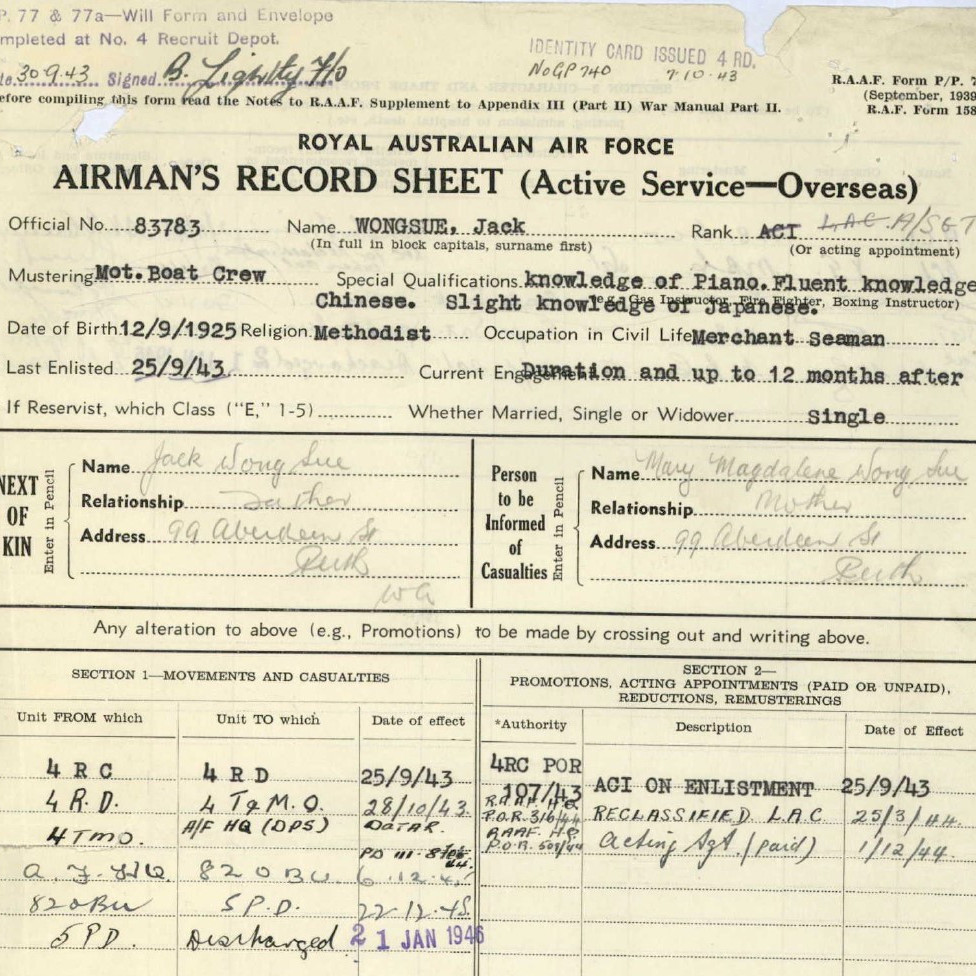 P. 77 & 77a—Will Form and Envelope
mpleted at No. 4 Recruit Depot.
te 30·9·43 Signed B. Lightly F/o
IDENTITY CARD ISSUED 4 RD.
No GP 740 7·10·43
efore compiling this form read the Notes to R.A.A.F. Supplement to Appendix III (Part II) War Manual Part II.
R.A.A.F. Form P/P. 7
(September, 1939
R.A.F. Form 158
ROYAL AUSTRALIAN AIR FORCE
AIRMAN'S RECORD SHEET (Active Service—Overseas)
Official No. 83783 Name WONGSUE, Jack Rank ACI LAC A/SGT
(In full in block capitals, surname first) (Or acting appointment)
Mustering Mot. Boat Crew Special Qualifications knowledge of Piano. Fluent knowledge
Chinese. Slight knowledge of Japanese.
(e.g., Gas Instructor, Fire Fighter, Boxing Instructor)
Date of Birth 12/9/1925 Religion Methodist Occupation in Civil Life Merchant Seaman
Last Enlisted 25/9/43 Current Engagement Duration and up to 12 months after
If Reservist, which Class ("E," 1-5) Whether Married, Single or Widower Single
NEXT OF KIN
Enter in Pencil
Name Jack Wong Sue
Relationship Father
Address 99 Aberdeen St
Perth
WA
Person to be Informed of Casualties
Enter in Pencil
Name Mary Magdalene Wong Sue
Relationship Mother
Address 99 Aberdeen St
Perth
Any alteration to above (e.g., Promotions) to be made by crossing out and writing above.
SECTION 1—MOVEMENTS AND CASUALTIES
Unit FROM which Unit TO which Date of effect
4 RC 4 RD 25/9/43
4 R.D. 4 T&M.O. 28/10/43.
4 TMO. A/F HQ (DPS)
A.F.HQ 82OBU 6.12.45
82OBU 5 P.D. 22·12·45.
5 PD. Discharged 21 JAN 1946
SECTION 2—
PROMOTIONS, ACTING APPOINTMENTS (PAID OR UNPAID),
REDUCTIONS, REMUSTERINGS
*Authority Description Date of Effect
4RC POR
107/43 ACI ON ENLISTMENT 25/9/43
R.A.A.F. H.Q.
P.O.R. 316/44 RECLASSIFIED L.A.C 25/3/44.
RAAF. HQ.
P.O.R. 508/44 Acting Sgt. (paid) 1/12/44.